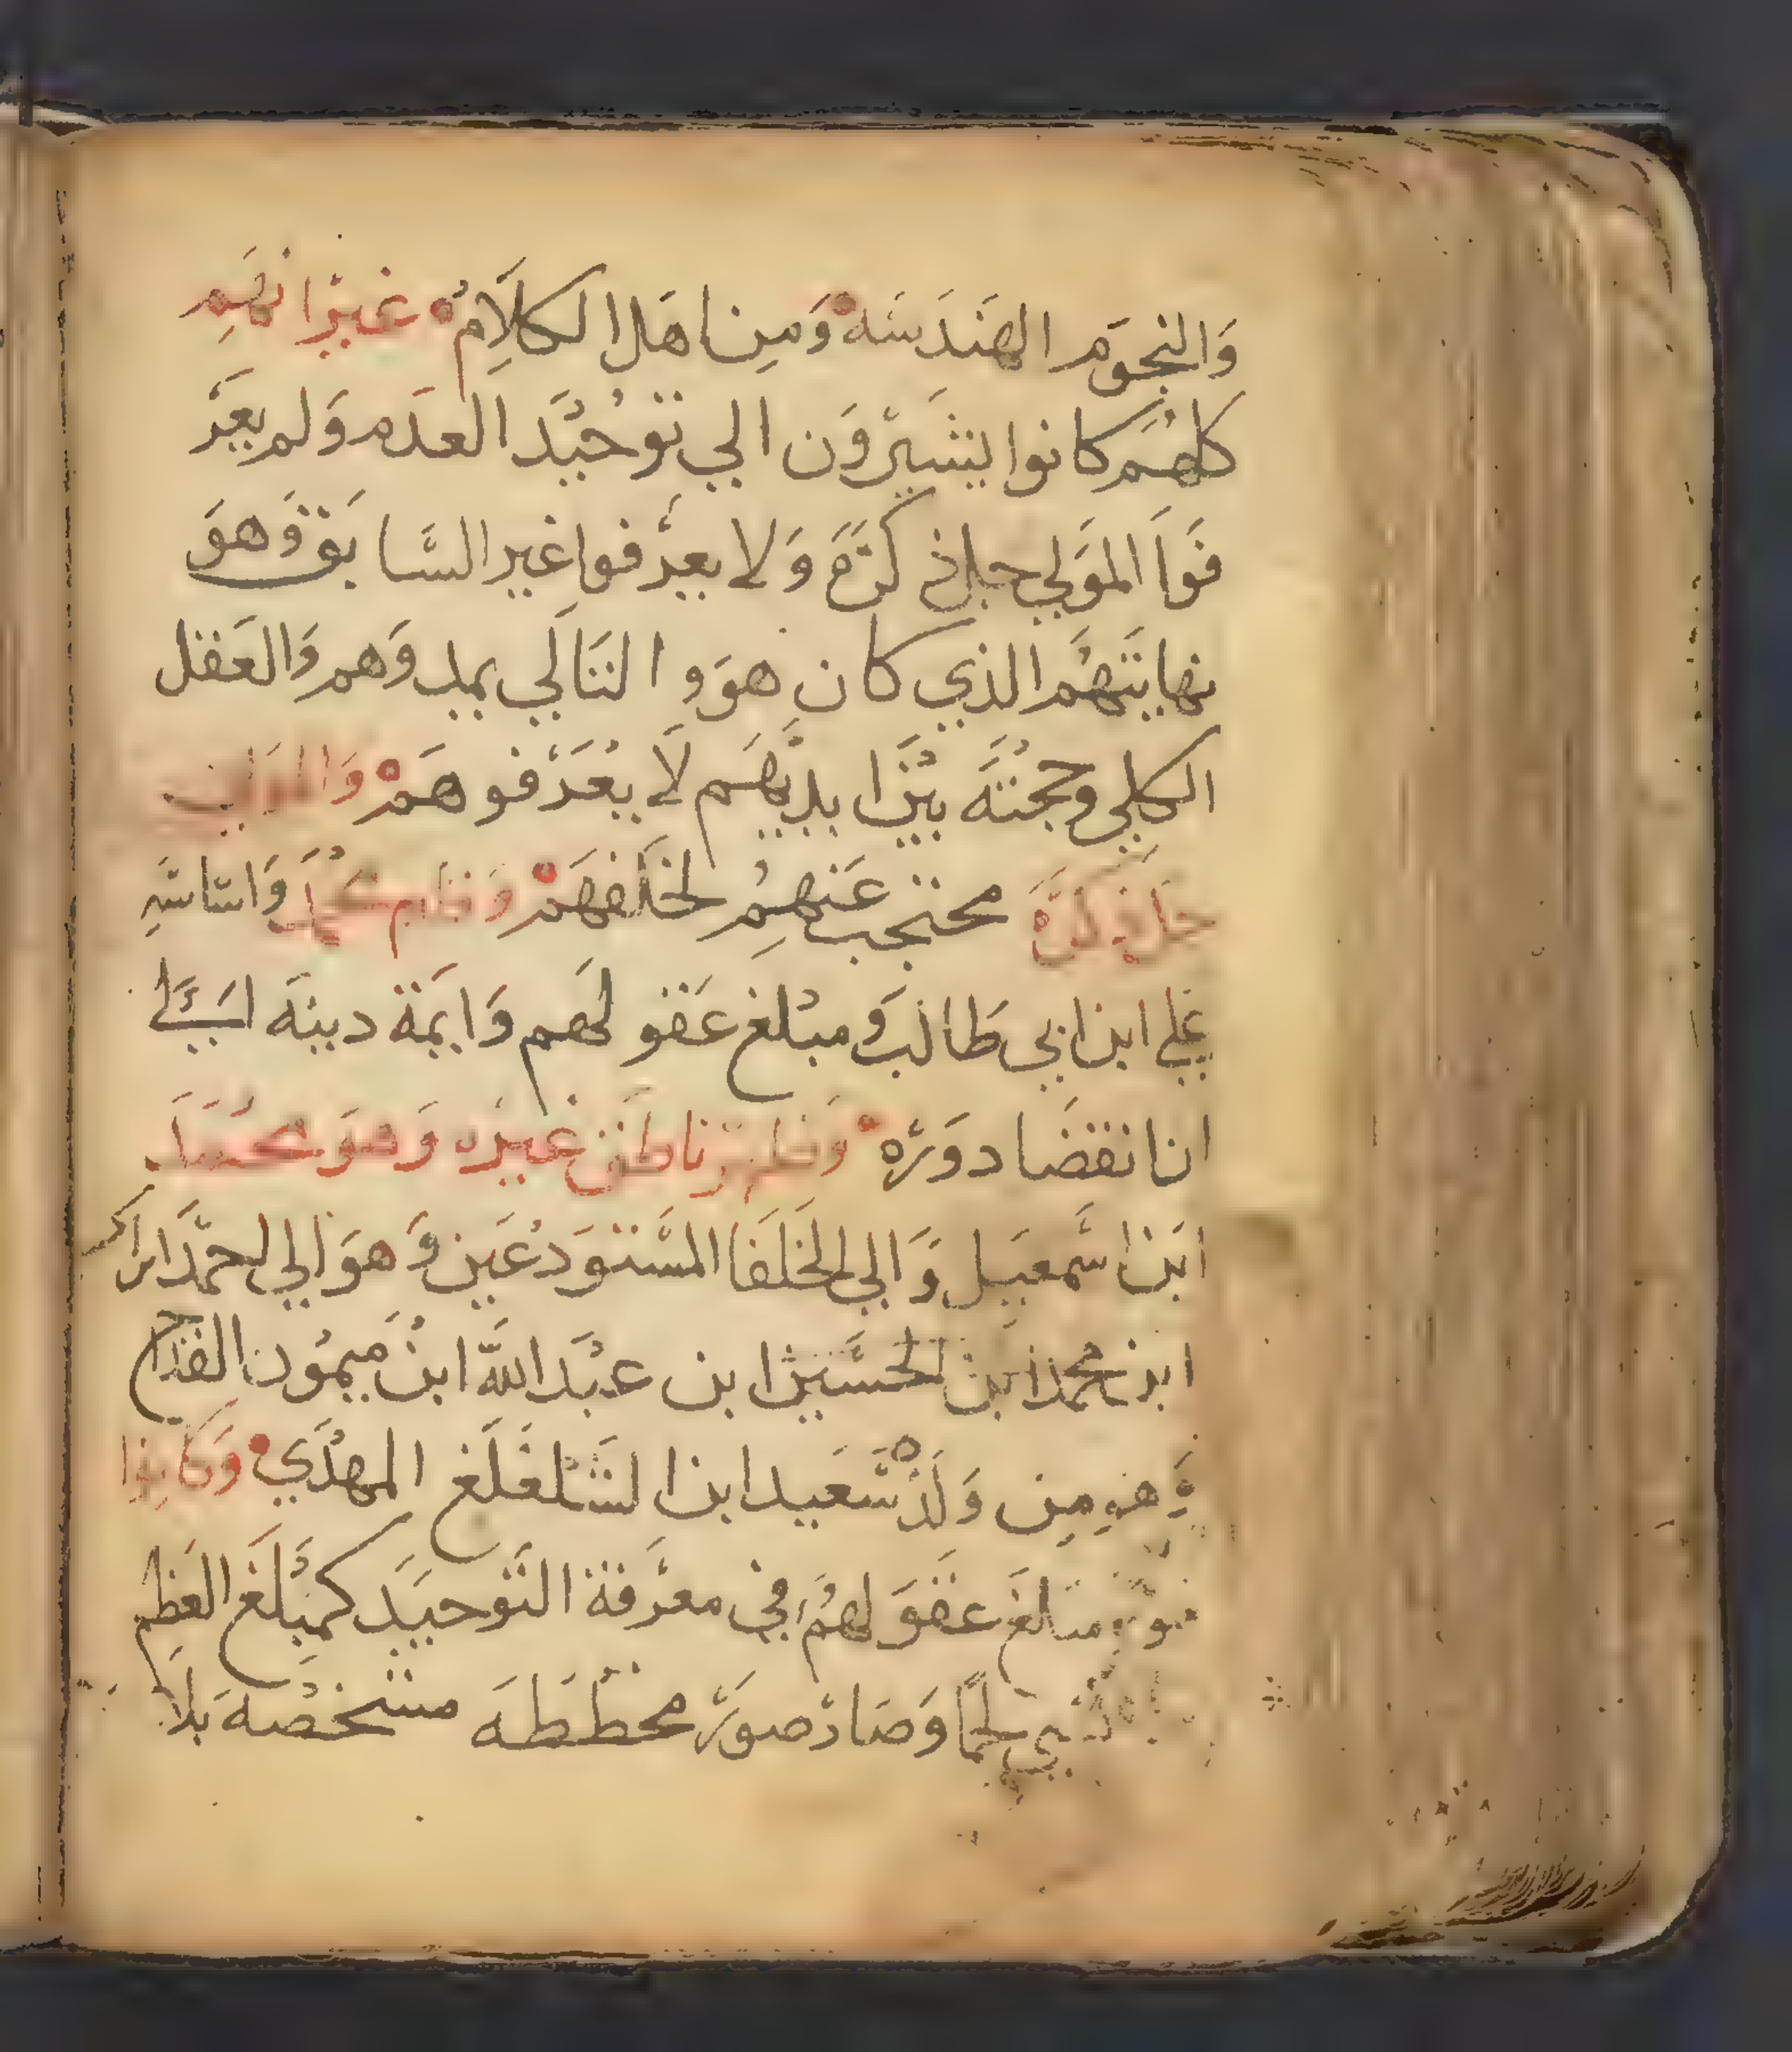 وَالنجوم الهَندَسَه وَمِن اهَل الكلاَمِ غيرَ انهَم
كلهُم كانوا يشَيرْوَن الي توحُيَد العدَم وَلم يعَرَ
فَوا المَولي جل ذكرَهَ وَلا يعرَفوا غير السَّابق وَهوَ
نهايتَهُم الذي كان هوَ و التَالَي يمد وَهم وَالعَقل
الكلي وحجُتَهَ بيَنَ ايديَهَم لاَ يعُرَفوهَم وَالموَلي
جلَ ذكرَهَ محتجب عَنهِمُ لخلَفهَم وَقام محُمدَ وَاسَاسَهِ
علي ابن ابي طَالبَ وَمبلغ عَقولَهَم وَايمَة دينهَ اليَ
ان انقضَا دوَرَه وَظهرَ ناطقَ غيرَه وَهوَ محُمَدَ
ابَن اسَمعيَل وَالي الخلَفَا المسَتوَدعَين وَهوَ الي احمدَ
ابن محمد ابن الحسَين ابن عبَد اللهَ ابنَ مَيمُون القدَاح
وَهوِ مِن وَلدَ سَعَيد ابن الشَلغَلَغ المهدَي وَكانوا
مبلغَ عقوَلهمُ في معرَفة التَوحيَد كمَبلَغَ العَظم
لحمًا وَصَارَ صورَه مخطَطهَ مشخَصَهَ بَلاَ